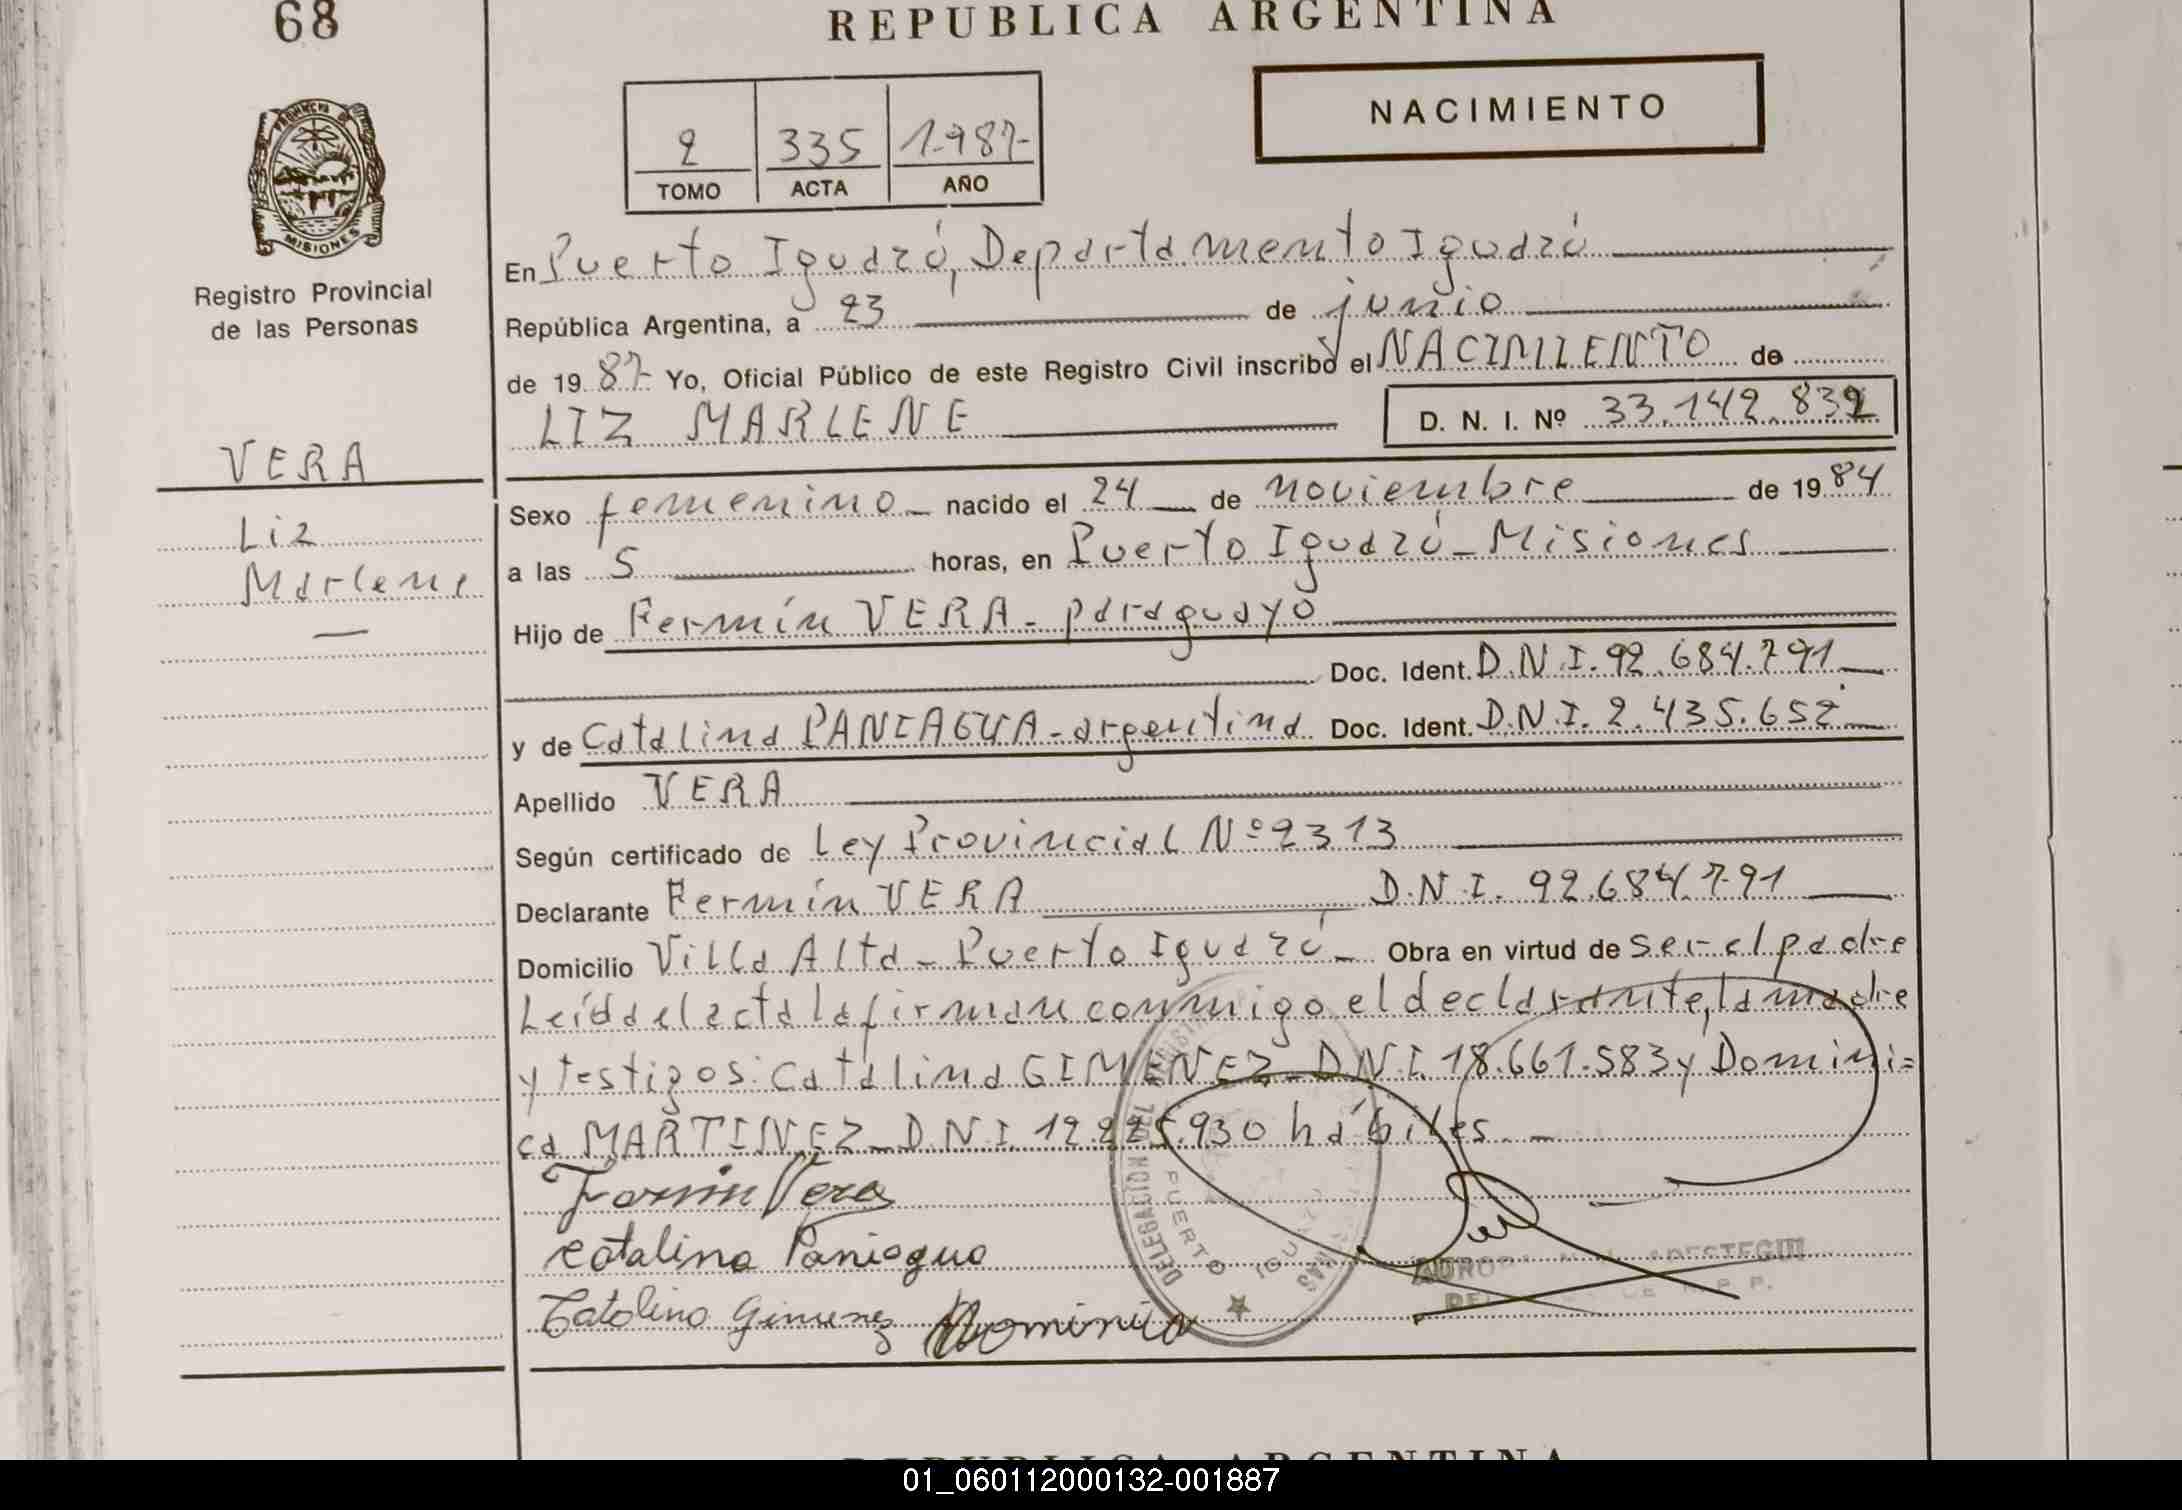 68
REPUBLICA ARGENTINA
NACIMIENTO
2 335 1.987-
TOMO ACTA AÑO
PROVINCIA DE
MISIONES
Registro Provincial
de las Personas
En Puerto Iguazú, Departamento Iguazú
República Argentina, a 23 de junio
de 1987- Yo, Oficial Público de este Registro Civil inscribo el NACIMIENTO de
LIZ MARLENE D. N. I. Nº 33.142.832
VERA
Liz
Marlene
Sexo femenino nacido el 24 de noviembre de 1984
a las 5 horas, en Puerto Iguazú - Misiones
Hijo de Fermín VERA - paraguayo
Doc. Ident. D.N.I. 92.684.791
y de Catalina PANIAGUA - argentina Doc. Ident. D.N.I. 2.435.652
Apellido VERA
Según certificado de Ley Provincial Nº 2313
Declarante Fermín VERA D.N.I. 92.684.791
Domicilio Villa Alta - Puerto Iguazú - Obra en virtud de ser el padre
Leída el acta la firman conmigo el declarante, la madre
y testigos: Catalina GIMENEZ - D.N.I. 18.661.583 y Domini=
ca MARTINEZ - D.N.I. 12.225.930 hábiles. -
Fermin Vera
Catalina Paniagua
Catalina Gimenez Dominica
DELEGACION DEL
PUERTO IGUAZU
REPUBLICA ARGENTINA
01_060112000132-001887